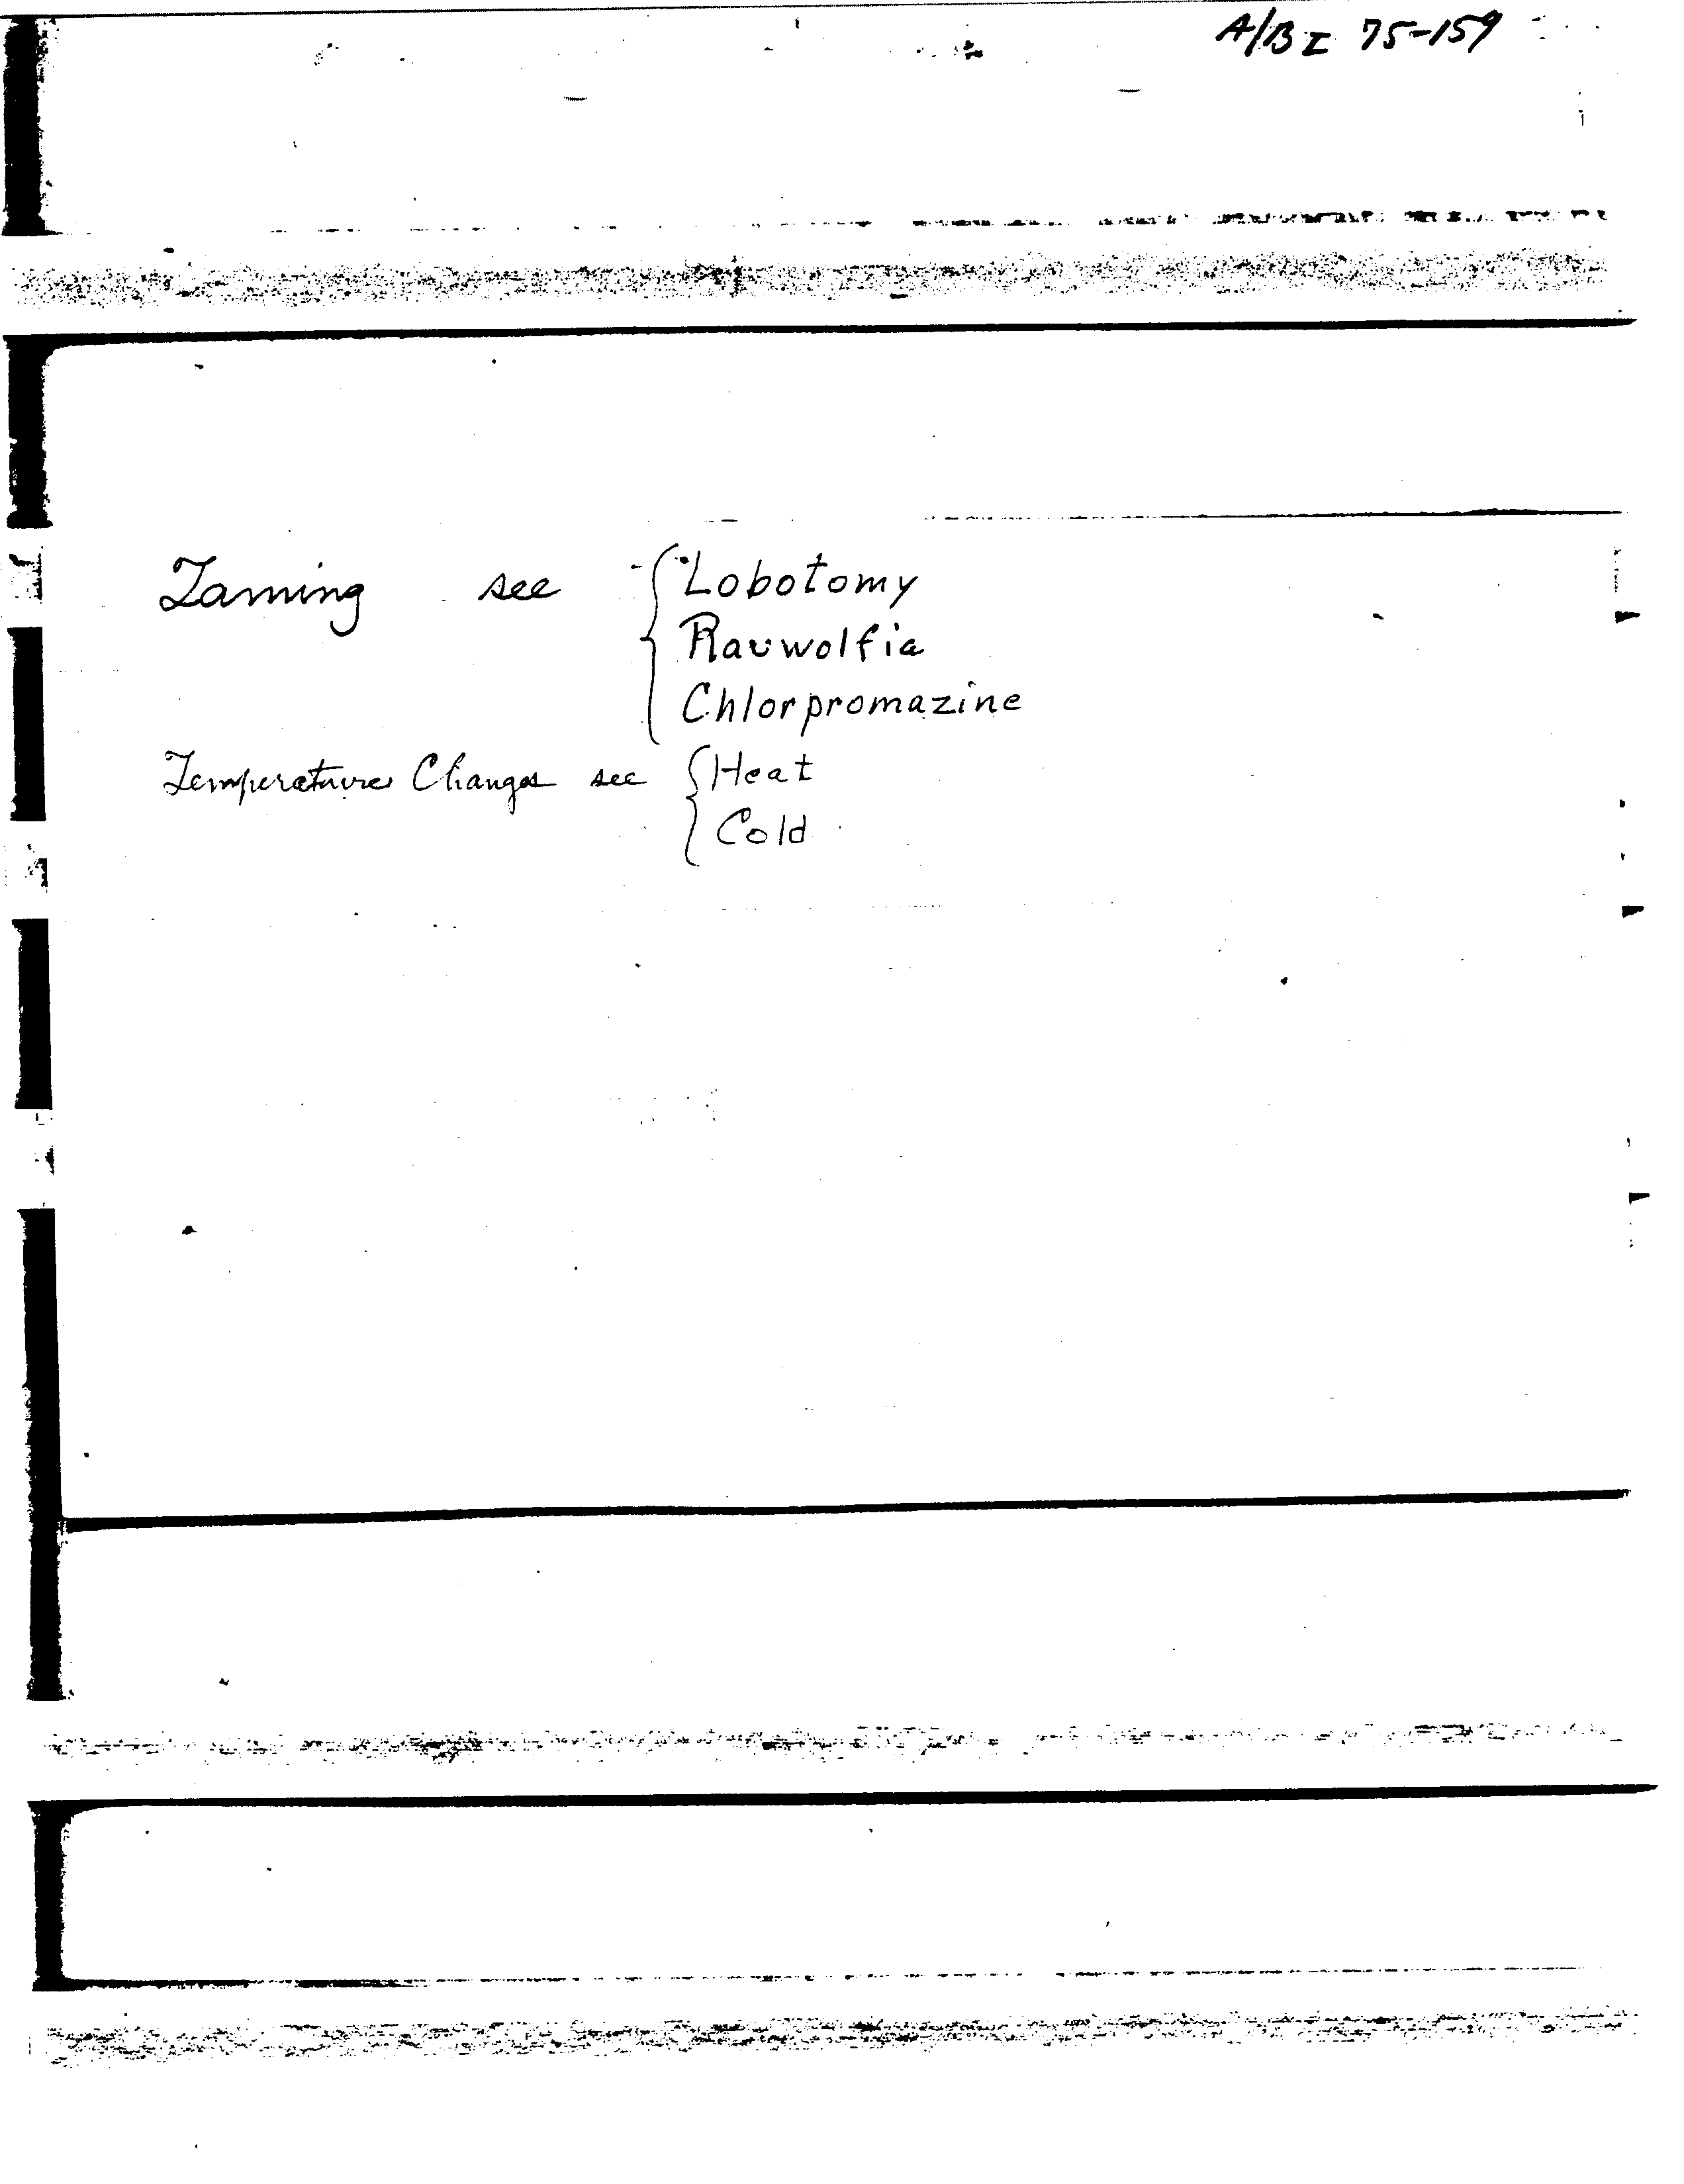 A/B I 75-159
Taming see { Lobotomy
Rauwolfia
Chlorpromazine
Temperature Changes see { Heat
Cold